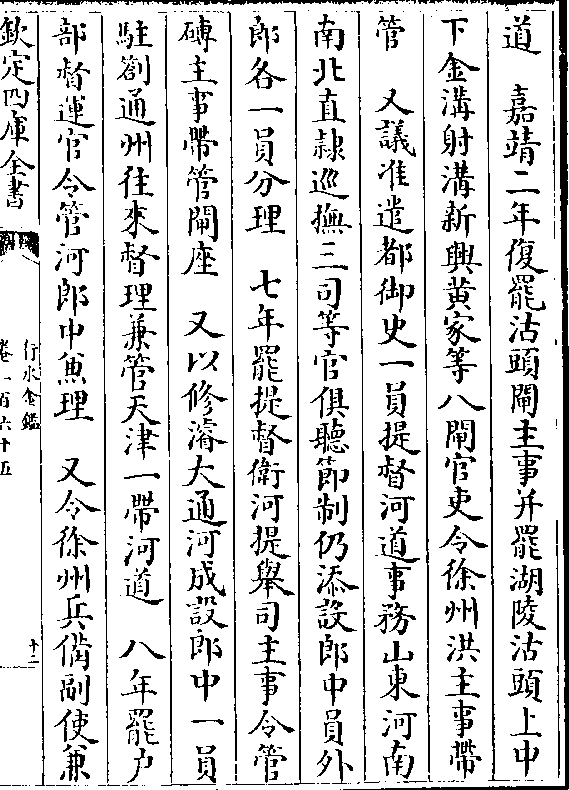 道　嘉靖二年復罷沽頭閘主事并罷湖陵沽頭上中
下金溝射溝新興黄家等八閘官吏令徐州洪主事帶
管　又議准遣都御史一員提督河道事務山東河南
南北直隸巡撫三司等官俱聽節制仍添設郎中員外
郎各一員分理　七年罷提督衛河提舉司主事令管
磚主事帶管閘座　又以修濬大通河成設郎中一員
駐劄通州往來督理兼管天津一帶河道　八年罷户
部督運官令管河郎中兼理　又令徐州兵備副使兼
欽定四庫全書
行水金鑑
卷一百六十五
十二